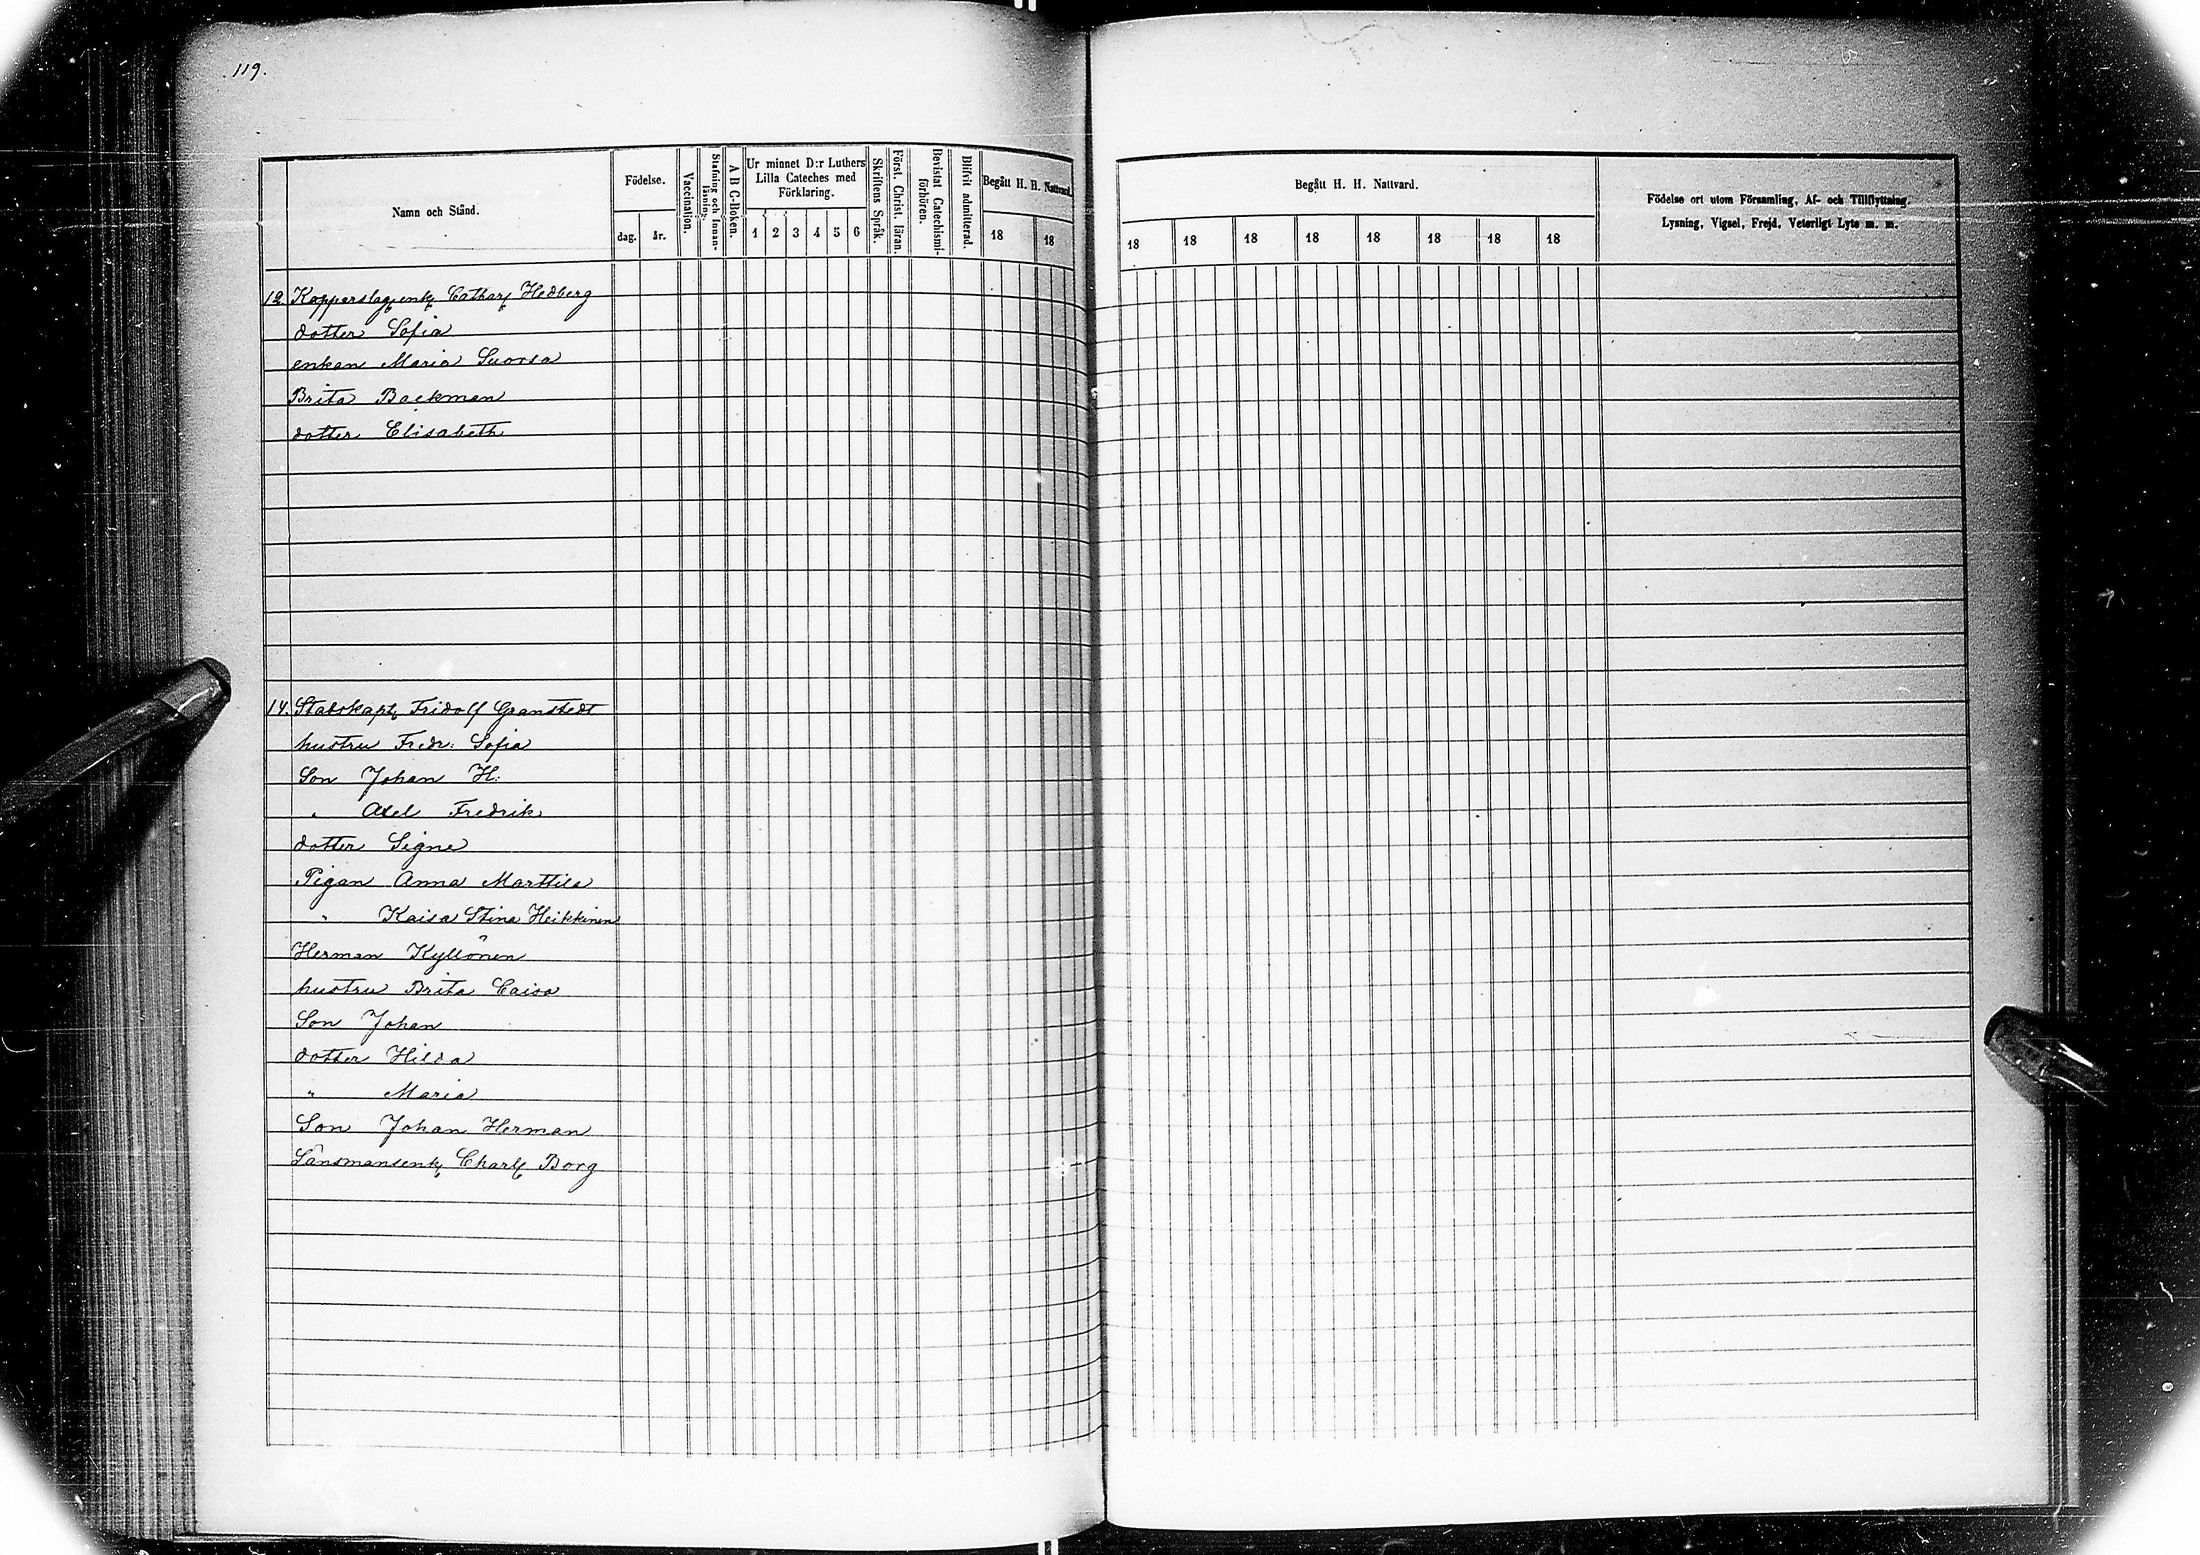 119.
Namn och Stånd.
Födelse.
dag.
år.
Vaccination.
Stafning och Innan-läsning.
A B C-Boken.
Ur minnet D:r Luthers
Lilla Cateches med
Förklaring.
1 2 3 4 5 6
Skriftens Språk.
Först. Christ. läran.
Bevistat Catechismi-förhören.
Blifvit admitterad.
Begått H. H. Nattvard.
18 18
Begått H. H. Nattvard.
18 18 18 18 18 18 18 18
Födelse ort utom Församling, Af- och Tillflyttning.
Lysning, Vigsel, Frejd, Veterligt Lyte m. m.
12. Kopperslag enk Cathar Hedberg
dotter Sofia
enkan Maria Suorsa
Brita Backman
dotter Elisabeth
14. Stabskapt Fridolf Granstedt
hustru Fredr: Sofia
Son Johan H:
" Axel Fredrik
dotter Signe
Pigan Anna Marttila
" Kaisa Stina Heikkinen
Herman Kyllönen
hustru Brita Caisa
Son Johan
dotter Hilda
" Maria
Son Johan Herman
Länsmansenk Charl Borg